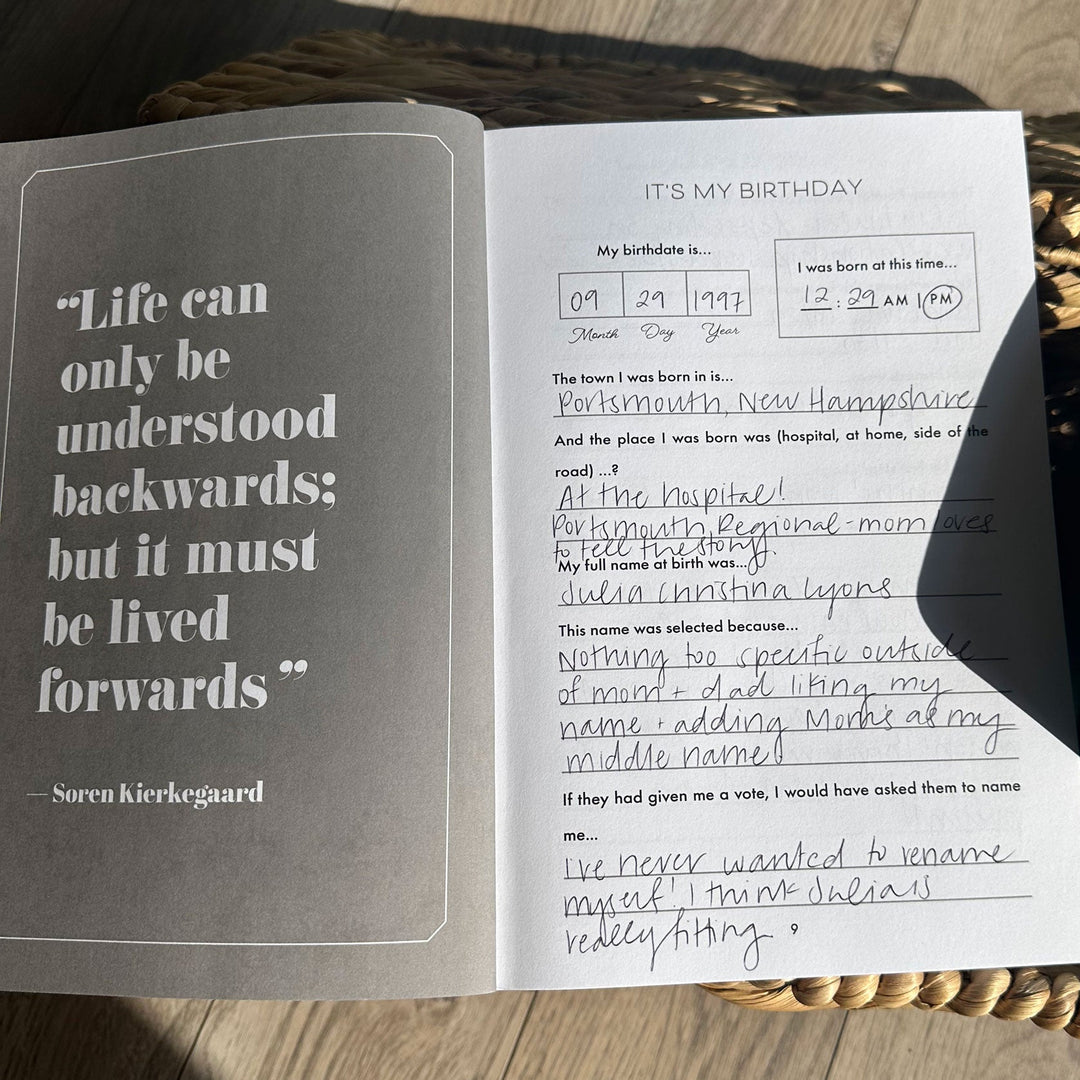 “Life can
only be
understood
backwards;
but it must
be lived
forwards”
— Soren Kierkegaard
IT'S MY BIRTHDAY
My birthdate is...
09 29 1997
Month Day Year
I was born at this time...
12 : 29 AM | PM
The town I was born in is...
Portsmouth, New Hampshire
And the place I was born was (hospital, at home, side of the
road) ...?
At the hospital!
Portsmouth Regional - mom loves
to tell the story.
My full name at birth was...
Julia Christina Lyons
This name was selected because...
Nothing too specific outside
of mom + dad liking my
name + adding Mom's as my
middle name!
If they had given me a vote, I would have asked them to name
me...
I've never wanted to rename
myself! I think Julia is
really fitting
9